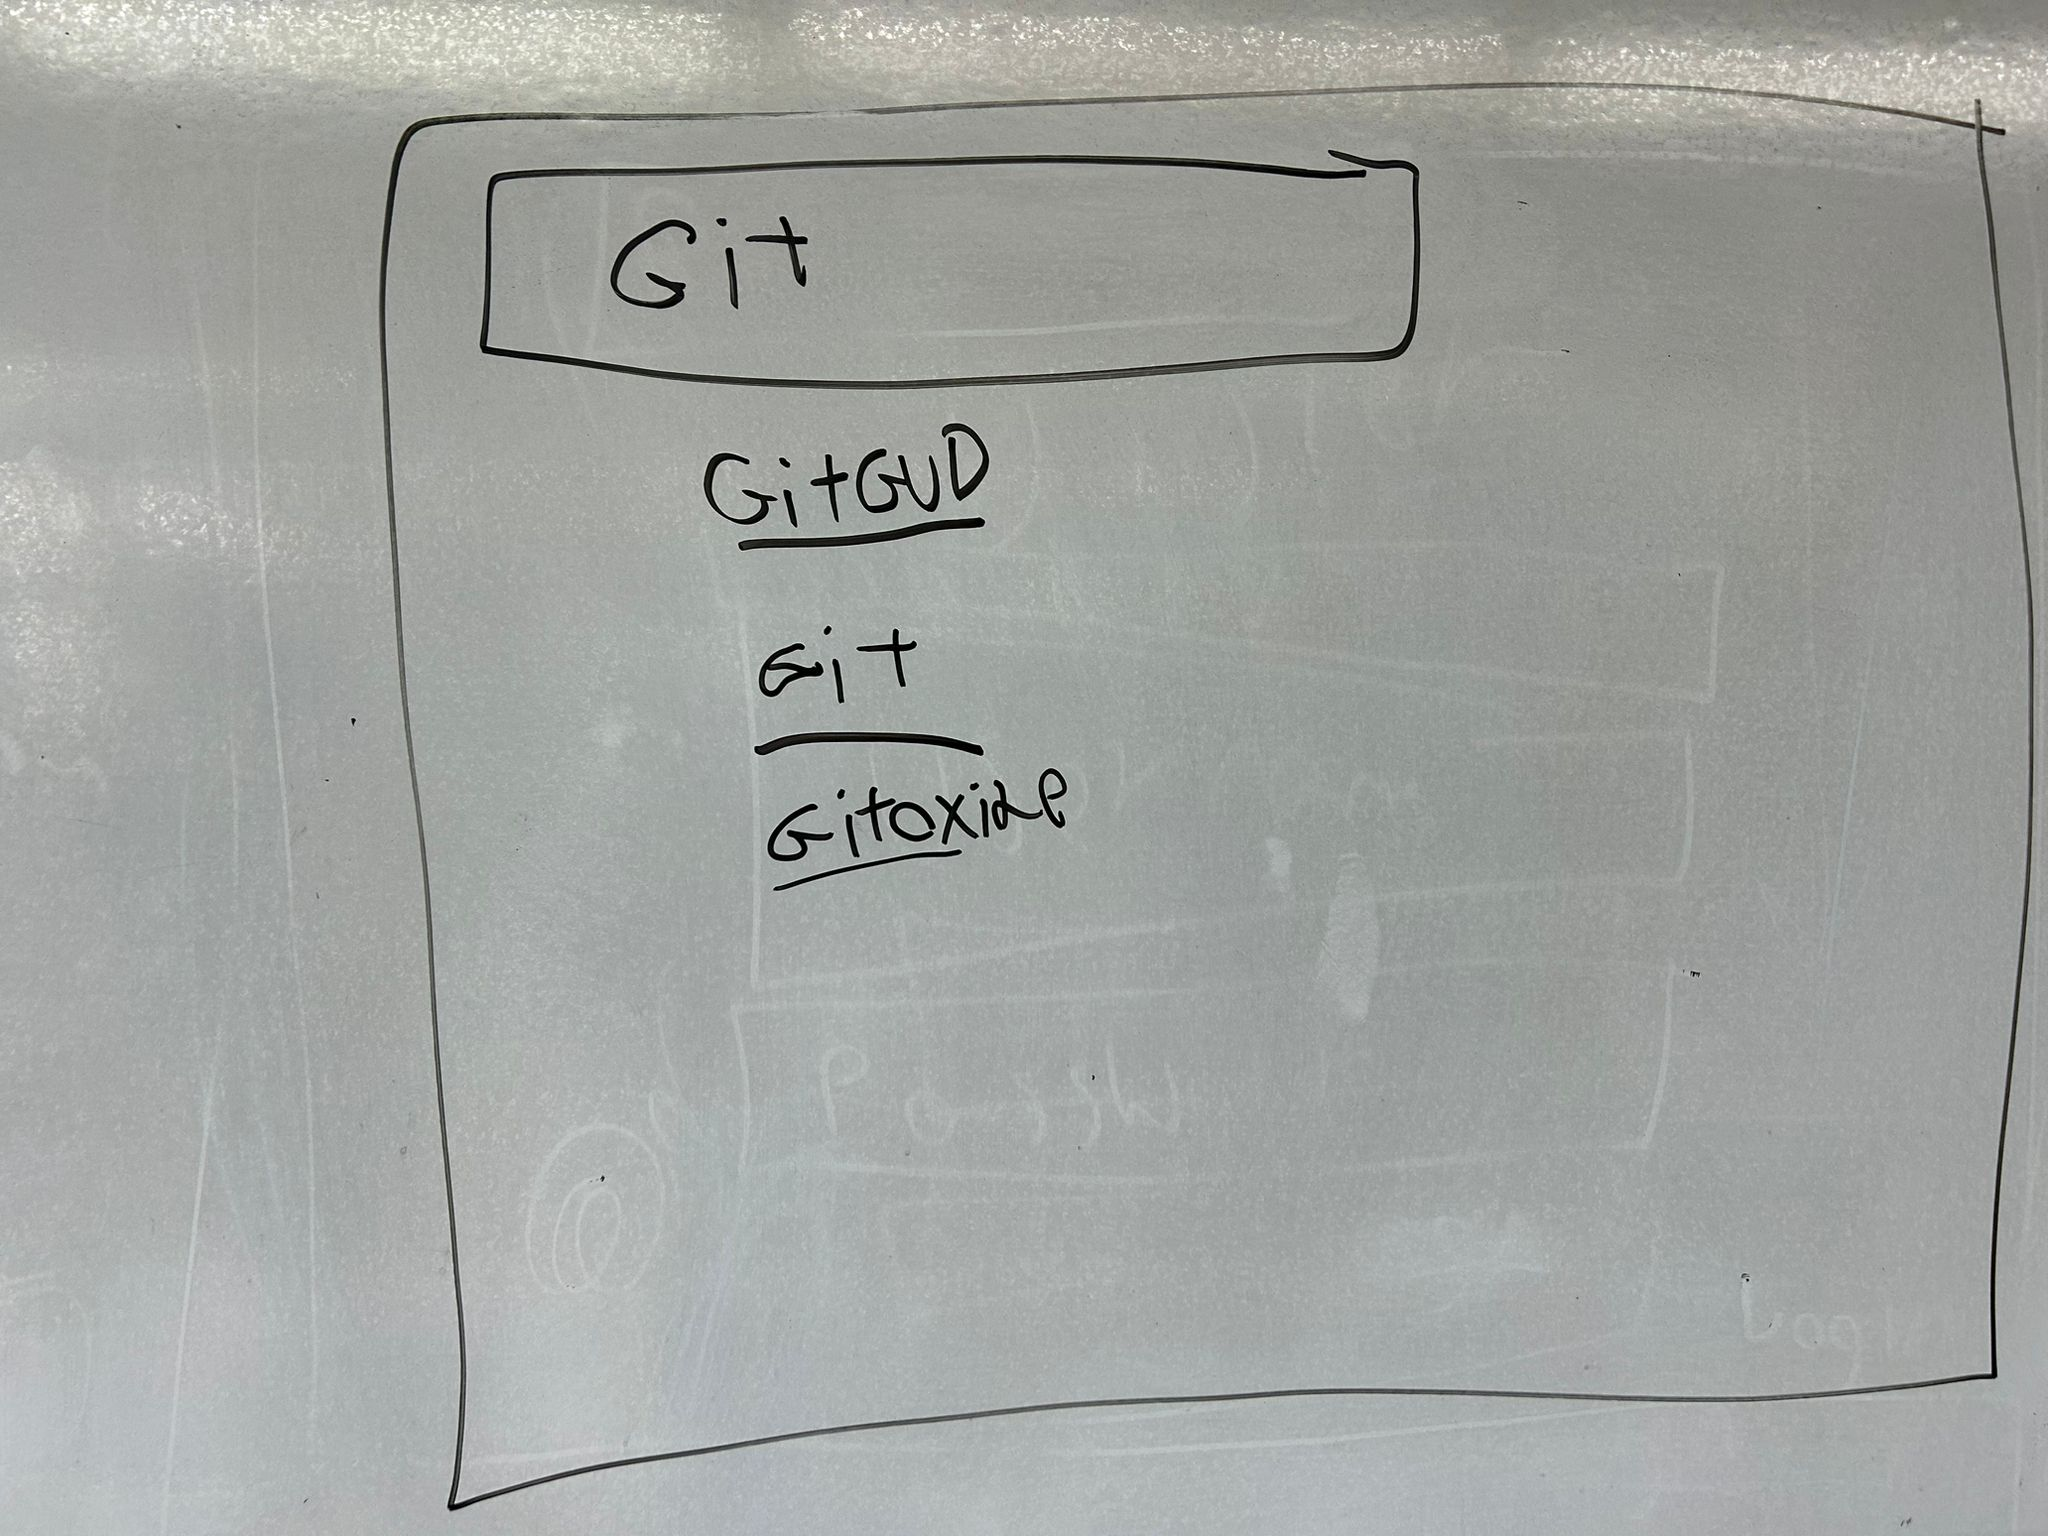 Git
GitGUD
Git
Gitoxide